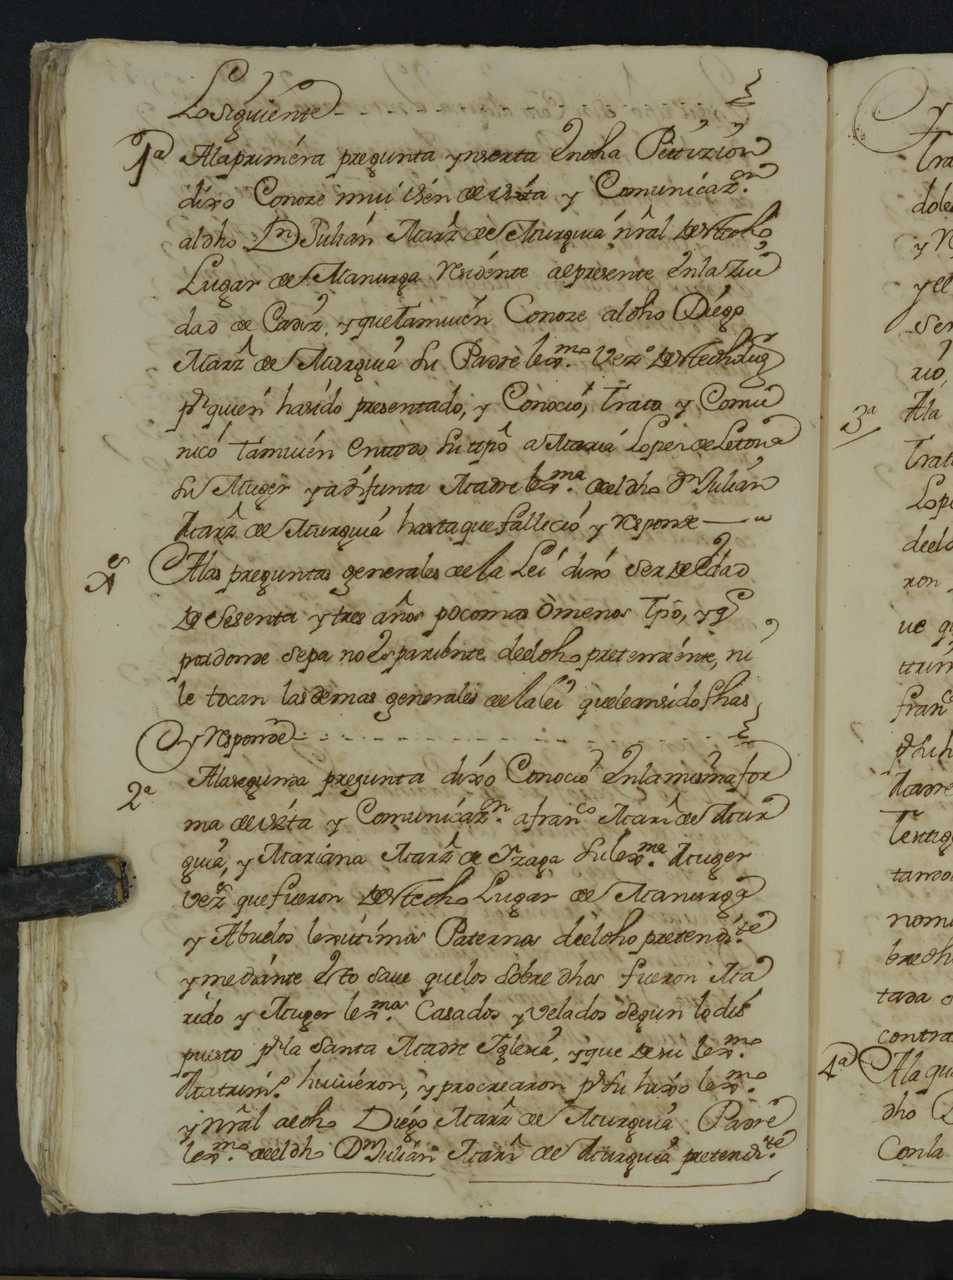 Lo siguiente
1ª Ala primera pregunta ynserta en dha Petizion
dixo Conoze mui vien de vista y Comunicazn.
al dho Dn Julián Marz de Murguia nrāl de este dho
Lugar de Manurga Residente al presente en la Ziu
dad de Cadiz, y que tamvién Conoze al dho Diego
Marz de Murguia su Padre lexmo. Vezo de este dho Lug
pr quien ha sido presentado, y Conoció, trato y Comu
nicó tamvién en todo su tpō a Maria Lopez de Letona
su Muger ya difunta Madre lexma. de el dho Dn Julián
Marz de Murguia hasta que falleció y Responde
Alas preguntas generales de la Lei dixo ser de Edad
de Sesenta y tres años poco mas ò menos tpō, y q
por donde sepa no es pariente de el dho pretendiente, ni
le tocan las demas generales de la lei que le an sido fhas
y Responde
2ª Ala segunda pregunta dixo Conoció en la misma for
ma de vista y Comunicazn. a franco Marz de Mur
guia, y Mariana Marz de Yzaga su lexma. Muger
vezs que fueron de este dho Lugar de Manurga
y Abuelos lexitimos Paternos de el dho pretendte.
y mediante esto save que los sobre dhos fueron Ma
rido y Muger lexmos. Casados y velados segun lo dis
puesto pr la Santa Madre Iglesia, y que de su lexmo.
Matrimo. huvieron, y procrearon pr su hixo lexmo.
y nrāl al dho Diego Marz de Murguia Padre
lexmo. de el dho Dn Julián Marz de Murguia pretendte.
3ª Ala
Trat
Lop
de el d
ron
ue q
tam
franco
Madre
Testig
tando
nom
bre dh
tada
contra
4ª Ala qu
dho D
Con la